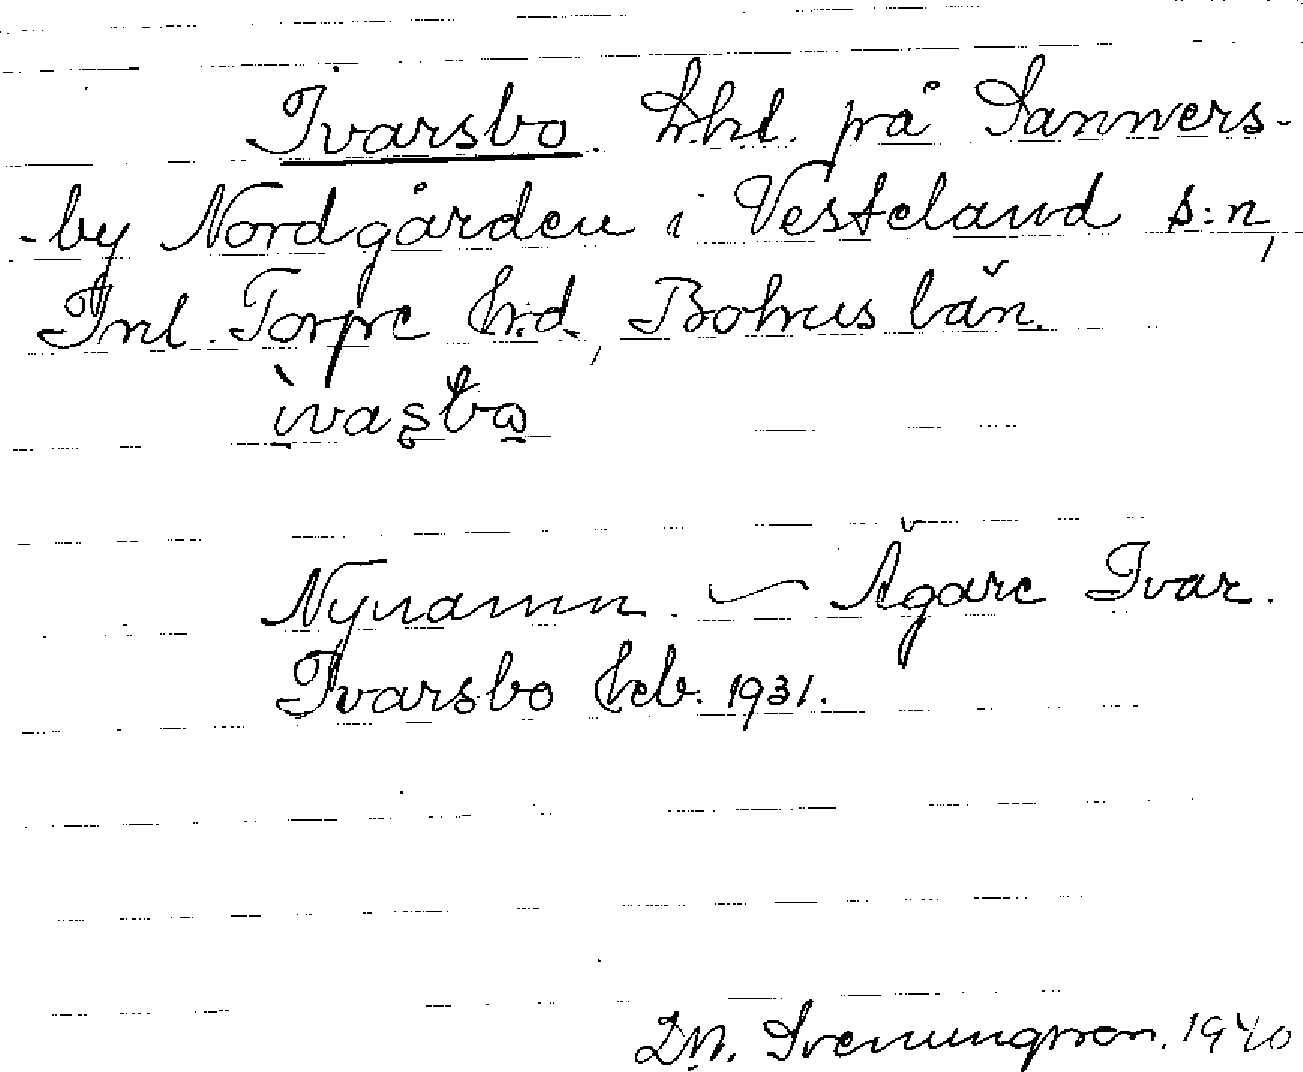 Ivarsbo. Lht. på Sanners-
-by Nordgården i Vesteland s:n,
Inl. Torpe hrd, Bohus län.
ìvaʂbɷ
Nynamn. — Ägare Ivar.
Ivarsbo heb. 1931.
D.N. Svenungsson. 1940